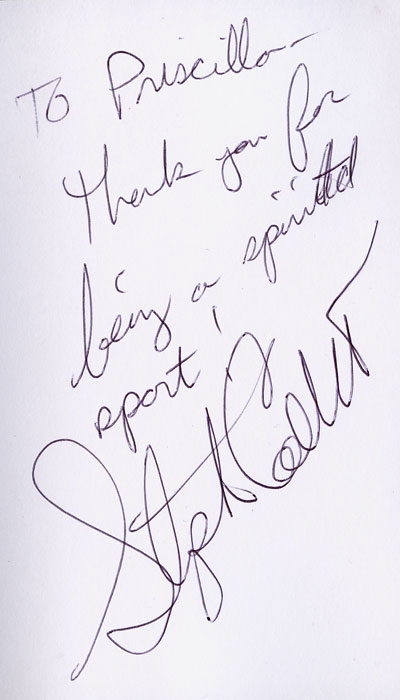 To Priscilla-
Thank you for
being a spirited
sport!
Stephen Colbert